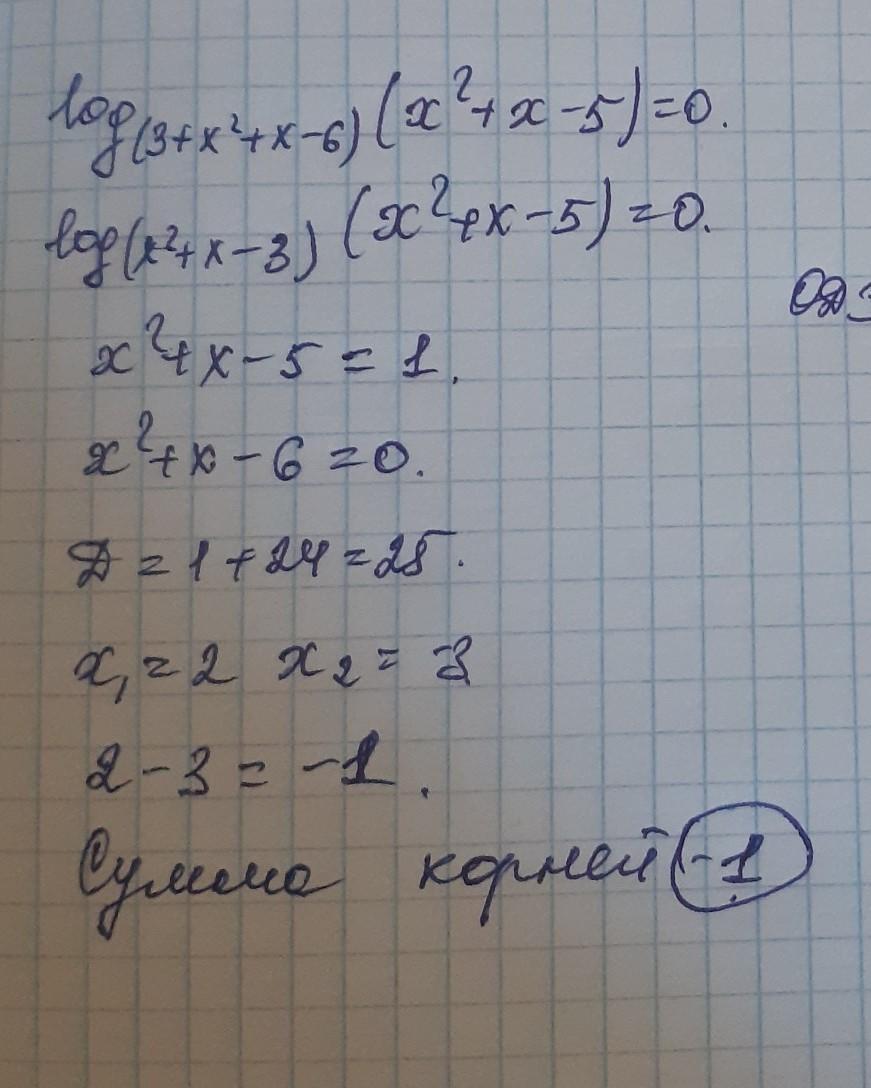 log(3+x²+x-6)(x²+x-5)=0.
log(x²+x-3)(x²+x-5)=0.
ОДЗ
x²+x-5=1.
x²+x-6=0.
Д=1+24=25.
x₁=2 x₂=-3
2-3=-1.
Сумма корней -1